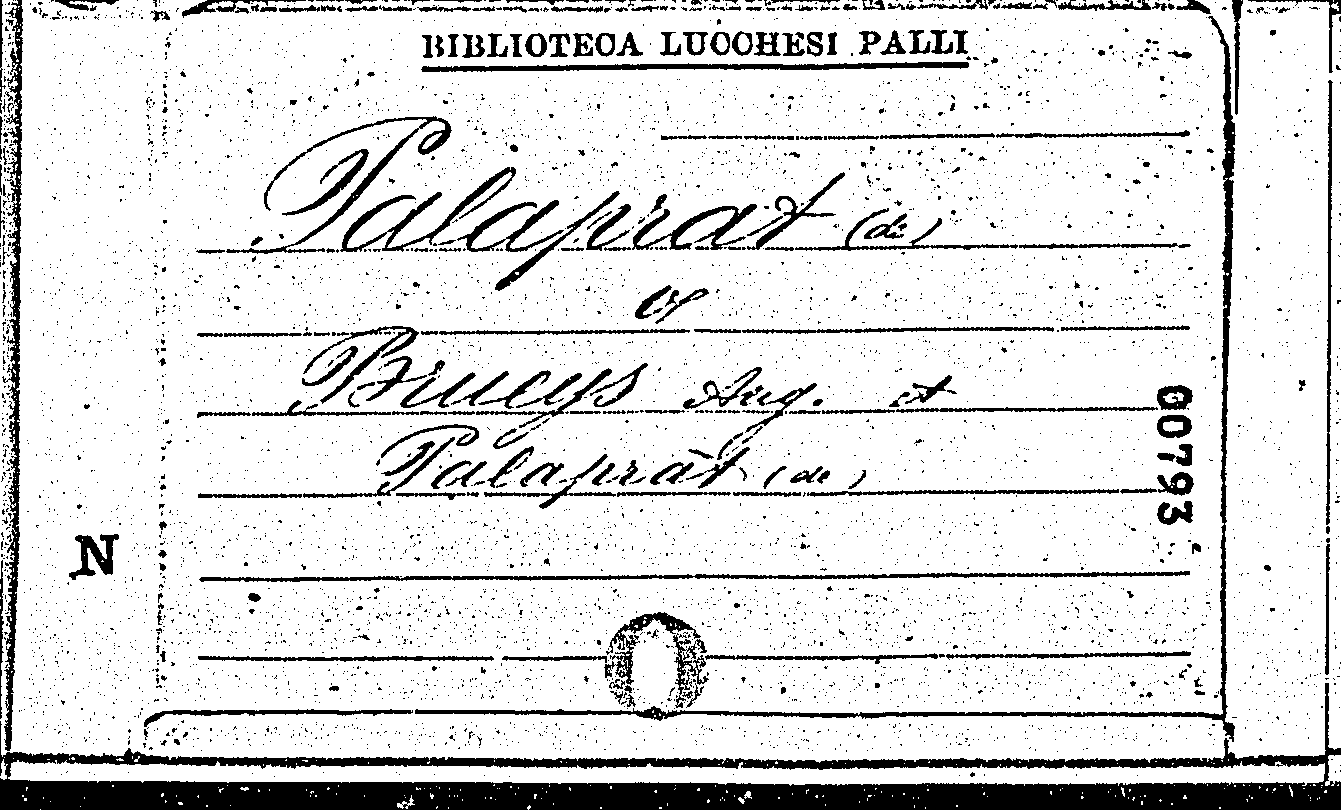 BIBLIOTECA LUCCHESI PALLI
Palaprat (de)
V
Brueys Aug. et
Palaprat (de)
00793
N